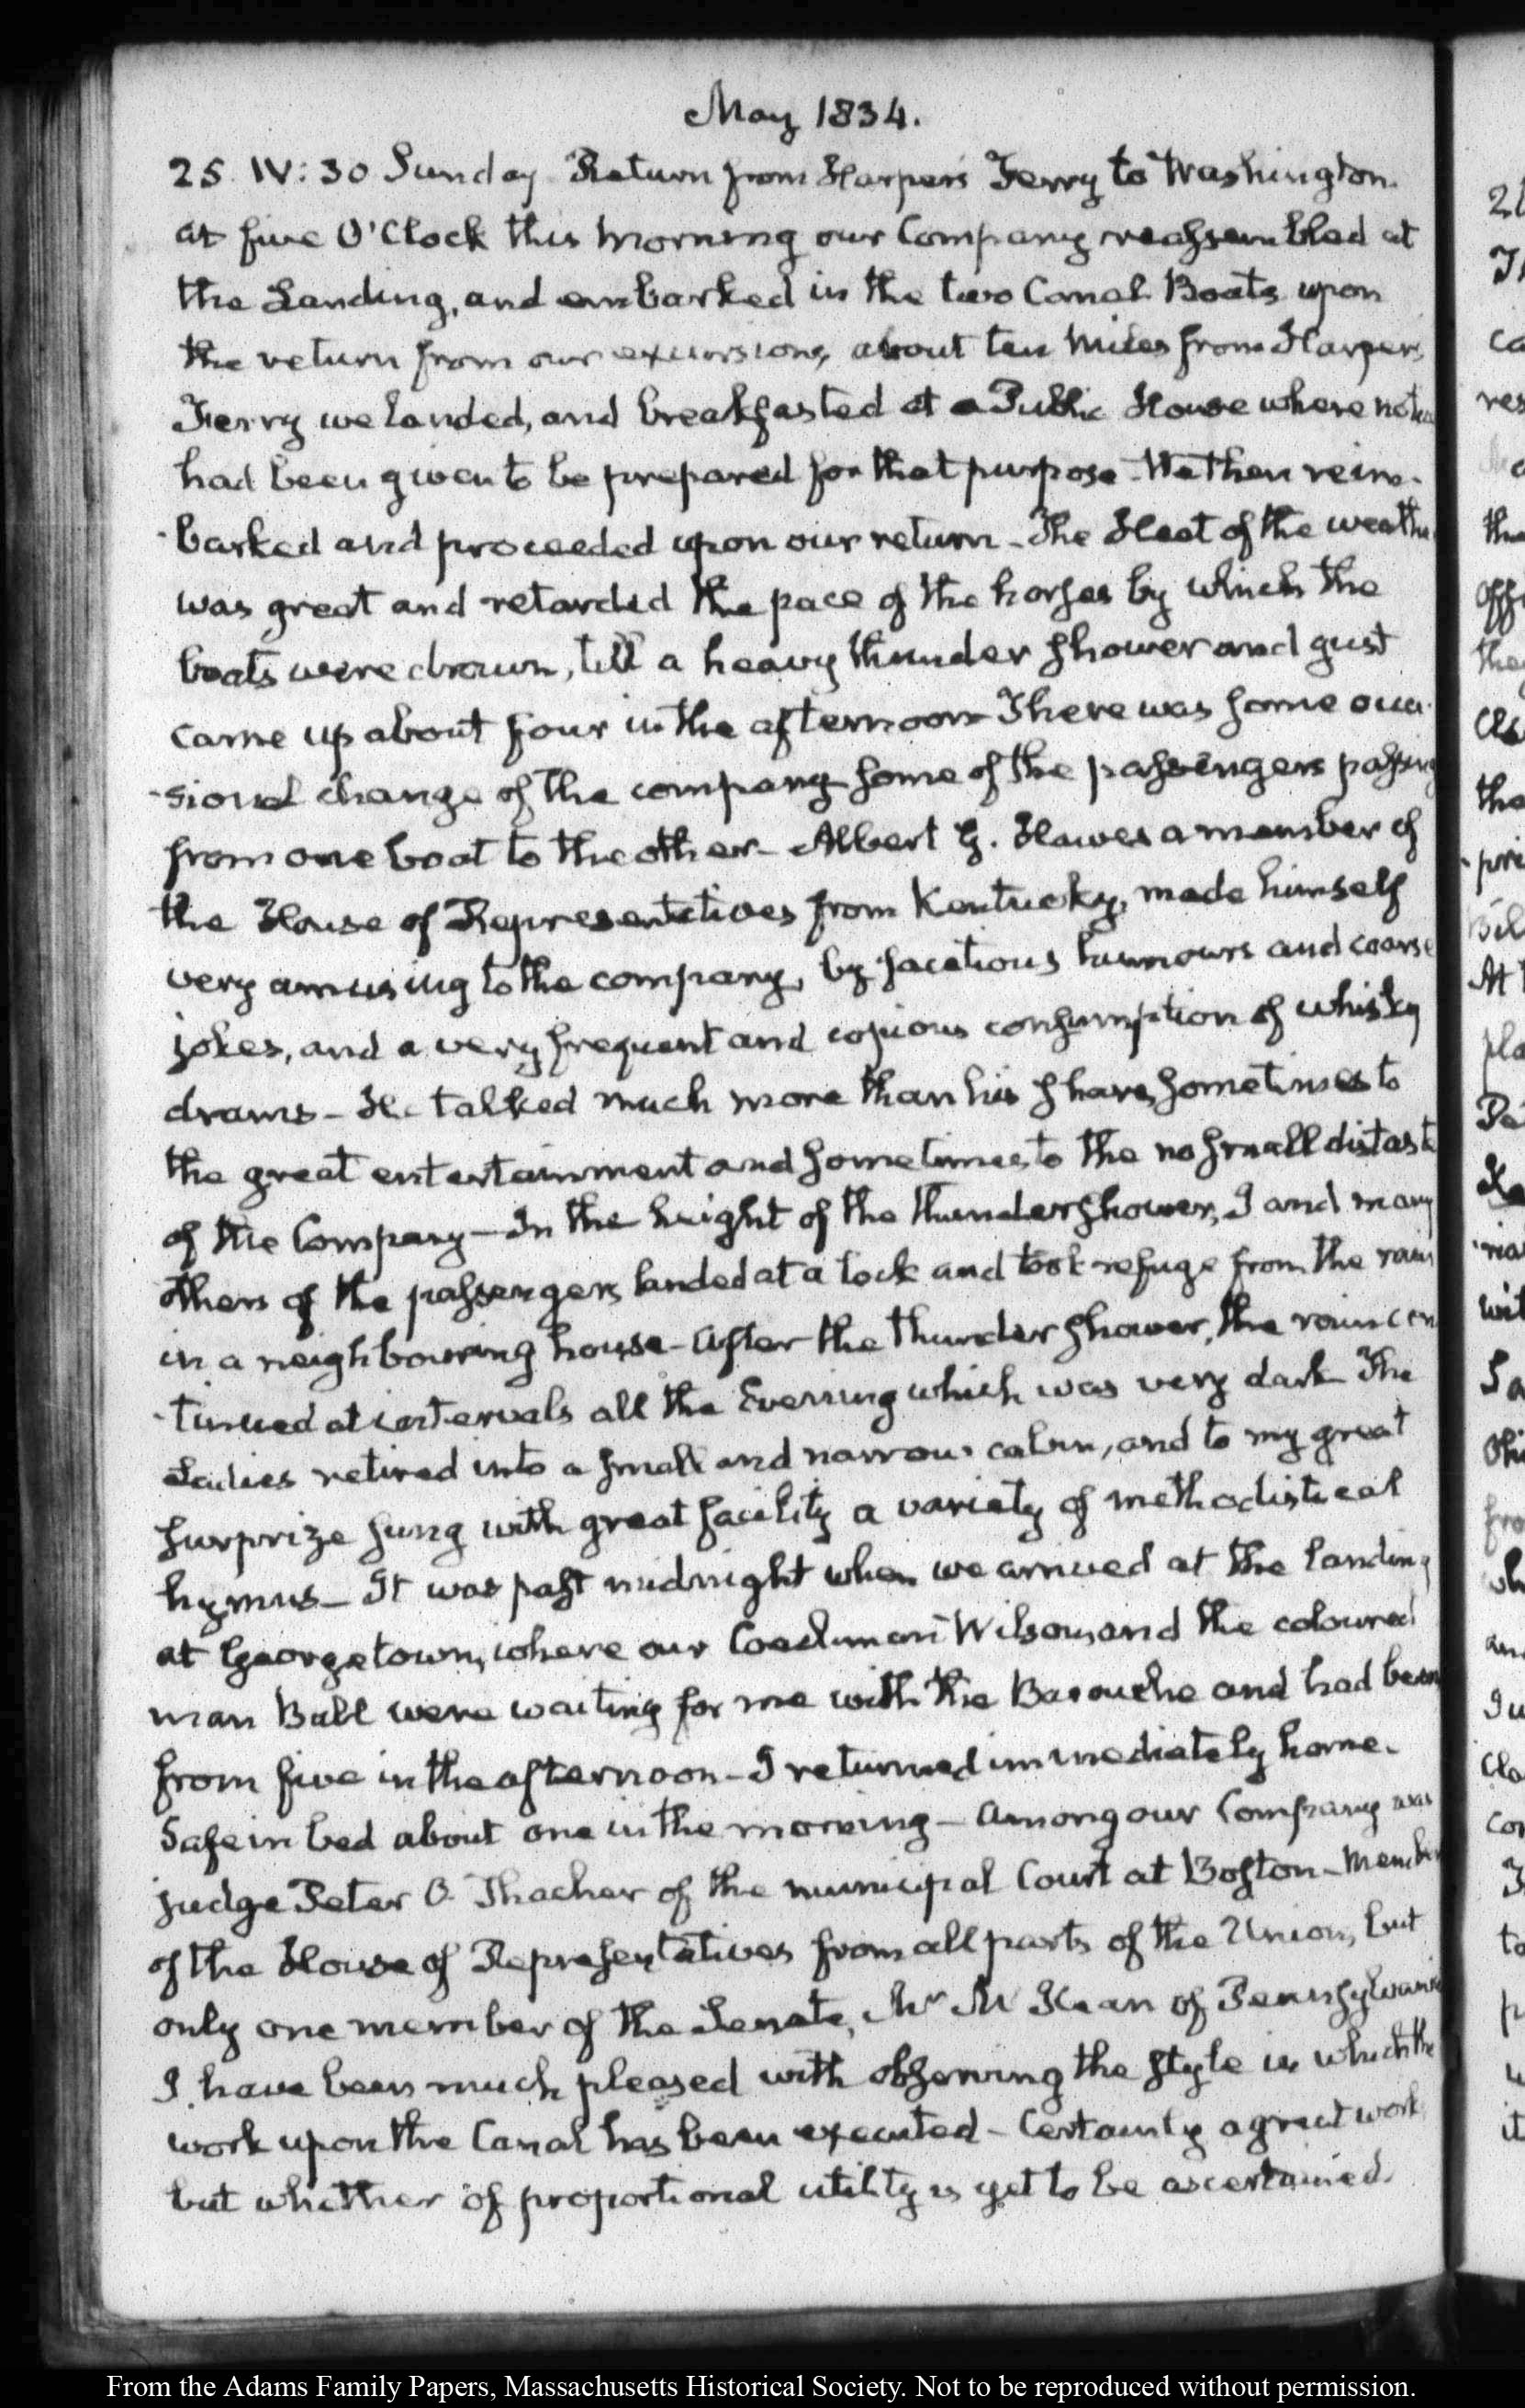 May 1834.
25. IV: 30 Sunday. Return from Harper's Ferry to Washington.
at five O'Clock this morning our Company reassembled at
the Landing, and embarked in the two Canal Boats upon
the return from our excursion, about ten miles from Harper's
Ferry we landed, and breakfasted at a Public House where notice
had been given to be prepared for that purpose - We then reim-
-barked and proceeded upon our return - The Heat of the weather
was great and retarded the pace of the horses by which the
boats were drawn, till a heavy thunder shower and gust
came up about four in the afternoon - There was some occa-
-sional change of the company some of the passengers passing
from one boat to the other - Albert G. Hawes a member of
the House of Representatives from Kentucky, made himself
very amusing to the company, by facetious humours and coarse
jokes, and a very frequent and copious consumption of whisky
drams - He talked much more than his share, sometimes to
the great entertainment and sometimes to the no small distaste
of the Company - In the height of the thunder shower, I and many
others of the passengers landed at a lock and took refuge from the rain
in a neighbouring house - After the thunder shower, the rain con
-tinued at intervals all the Evening which was very dark - The
Ladies retired into a small and narrow cabin, and to my great
surprize sung with great facility a variety of methodistical
hymns - It was past midnight when we arrived at the landing
at Georgetown, where our Coachman Wilson, and the coloured
man Ball were waiting for me with the Barouche and had been
from five in the afternoon - I returned immediately home.
Safe in bed about one in the morning - Among our Company was
judge Peter O. Thacher of the municipal Court at Boston - Members
of the House of Representatives from all parts of the Union, but
only one member of the Senate, Mr McKean of Pennsylvania
I have been much pleased with observing the style in which the
work upon the Canal has been executed - Certainly a great work
but whether of proportional utility is yet to be ascertained.
From the Adams Family Papers, Massachusetts Historical Society. Not to be reproduced without permission.